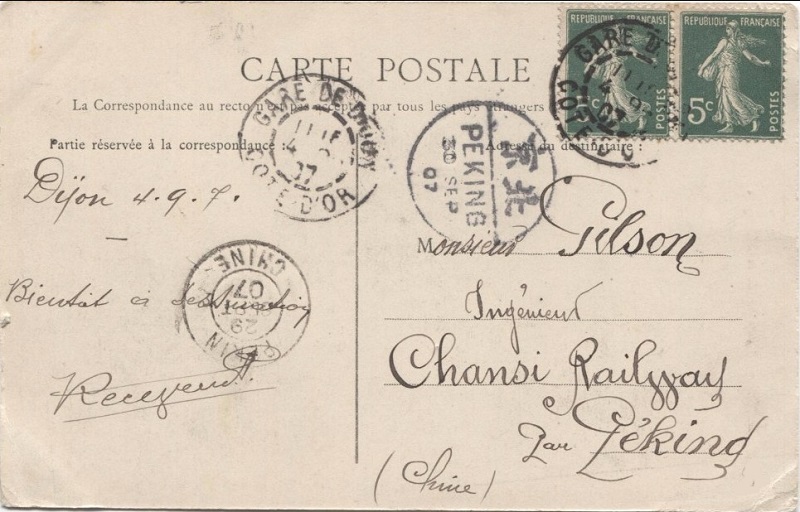 REPUBLIQUE FRANÇAISE
POSTES
REPUBLIQUE FRANÇAISE
5c
POSTES
GARE D
4
07
COTE-D'O
CARTE POSTALE
La Correspondance au recto n'est pas acceptée par tous les pays étrangers
Partie réservée à la correspondance :
Adresse du destinataire :
GARE DE DIJON
4
07
COTE-D'OR
北京
PEKING
30 SEP
07
Dijon 4.9.7.
Bientôt à destination
CHINE
07
29
PEKIN
Monsieur Gilson
Ingénieur
Chansi Railway
par Pékind
(Chine)